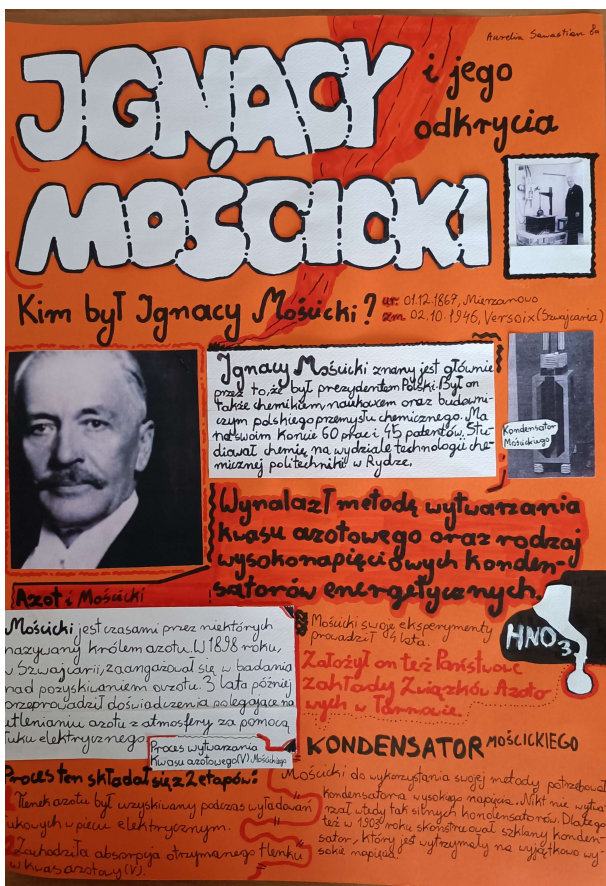 Aurelia Sewastian 8a
IGNACY
MOŚCICKI
i jego
odkrycia
Kim był Ignacy Mościcki?
ur. 01.12.1867, Mierzanowo
zm. 02.10.1946, Versoix (Szwajcaria)
Ignacy Mościcki znany jest głównie
przez to, że był prezydentem Polski. Był on
także chemikiem, naukowcem oraz budowni-
czym polskiego przemysłu chemicznego. Ma
na swoim koncie 60 prac i 45 patentów. Stu-
diował chemię na wydziale technologii che-
micznej politechniki w Rydze.
Kondensator
Mościckiego
Wynalazł metodę wytwarzania
kwasu azotowego oraz rodzaj
wysokonapięciowych konden-
satorów energetycznych.
Azot i Mościcki
Mościcki jest czasami przez niektórych
nazywany królem azotu. W 1898 roku,
w Szwajcarii, zaangażował się w badania
nad pozyskiwaniem azotu. 3 lata później
przeprowadził doświadczenia polegające na
utlenianiu azotu z atmosfery za pomocą
łuku elektrycznego
Proces wytwarzania
kwasu azotowego(V) Mościckiego
Proces ten składał się z 2 etapów:
1. Tlenek azotu był uzyskiwany podczas wyładowań
łukowych w piecu elektrycznym.
2. Zachodziła absorpcja otrzymanego tlenku
w kwas azotowy (V).
Mościcki swoje eksperymenty
prowadził 4 lata.
HNO3
Założył on też Państwowe
zakłady Związków Azoto
wych w Tarnowie.
KONDENSATOR MOŚCICKIEGO
Mościcki do wykorzystania swojej metody potrzebował
kondensatora wysokiego napięcia. Nikt nie wytwa
rzał wtedy tak silnych kondensatorów. Dlatego
też w 1903 roku skonstruował szklany konden-
sator, który jest wytrzymały na wyjątkowo wy-
sokie napięcia.